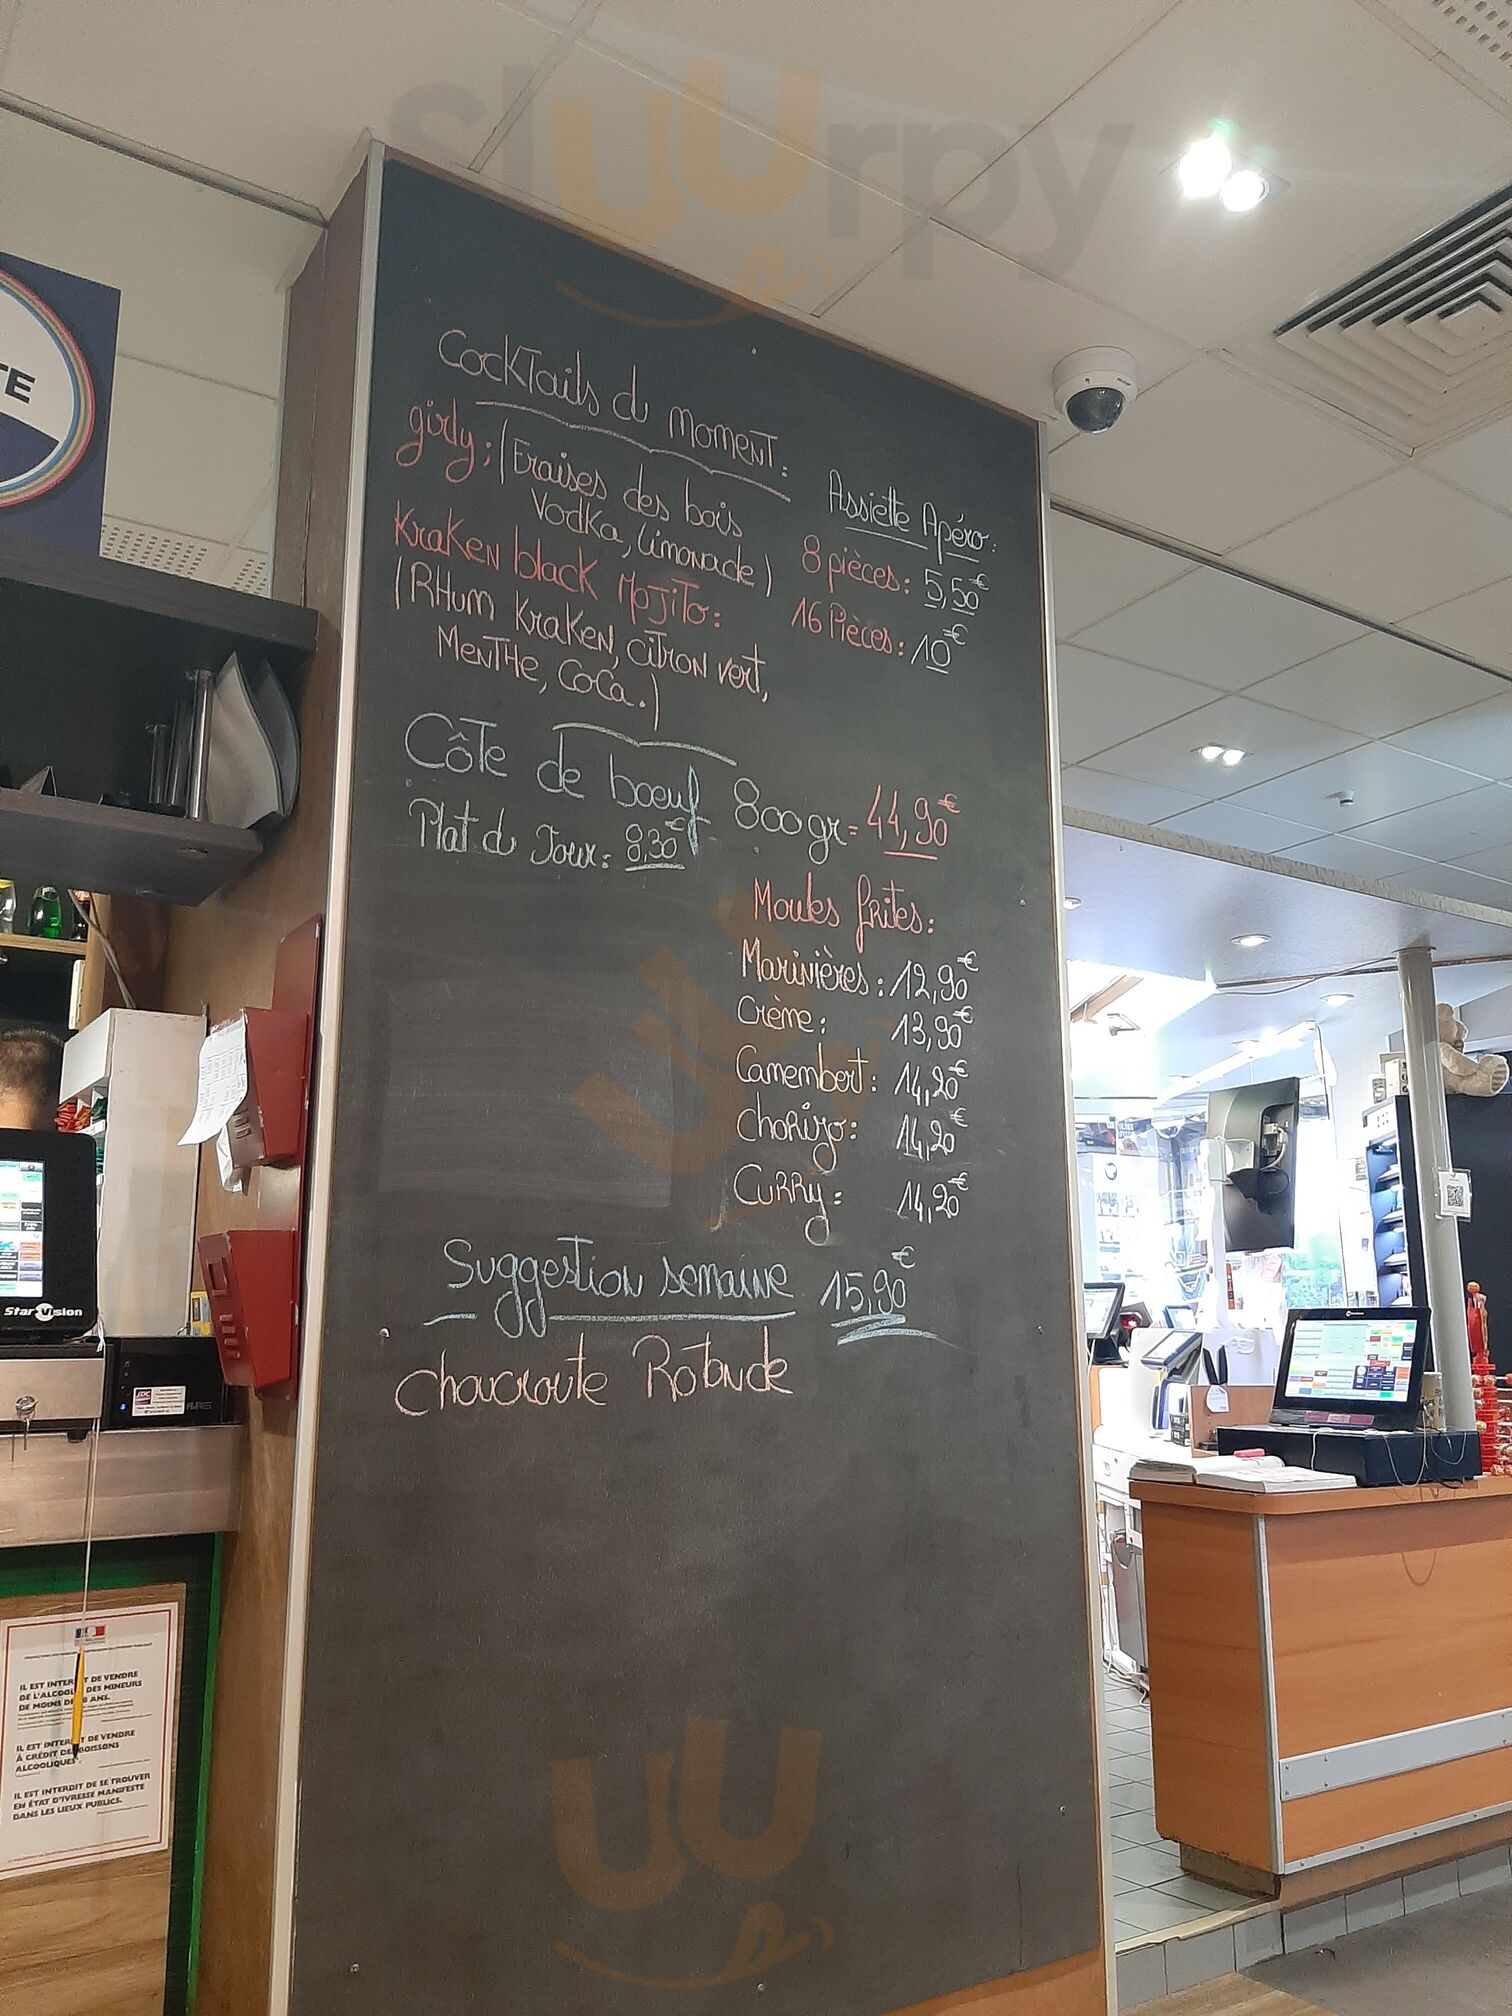 sluurpy
TE
Cocktails du moment:
girly: (Fraises des bois
Vodka, Limonade)
Kraken black Mojito:
(Rhum Kraken, citron vert,
Menthe, Coca.)
Assiette Apéro:
8 pièces: 5,50€
16 Pièces: 10€
Côte de boeuf 800gr = 44,90€
Plat du Jour: 8,30€
Moules frites:
Marinières: 12,90€
Crème: 13,90€
Camembert: 14,20€
Chorizo: 14,20€
Curry: 14,20€
Suggestion semaine 15,90€
Choucroute Rotonde
Star Vision
JDC
IL EST INTERDIT DE VENDRE
DE L'ALCOOL DES MINEURS
DE MOINS DE 18 ANS.
IL EST INTERDIT DE VENDRE
À CRÉDIT DES BOISSONS
ALCOOLIQUES
IL EST INTERDIT DE SE TROUVER
EN ÉTAT D'IVRESSE MANIFESTE
DANS LES LIEUX PUBLICS.